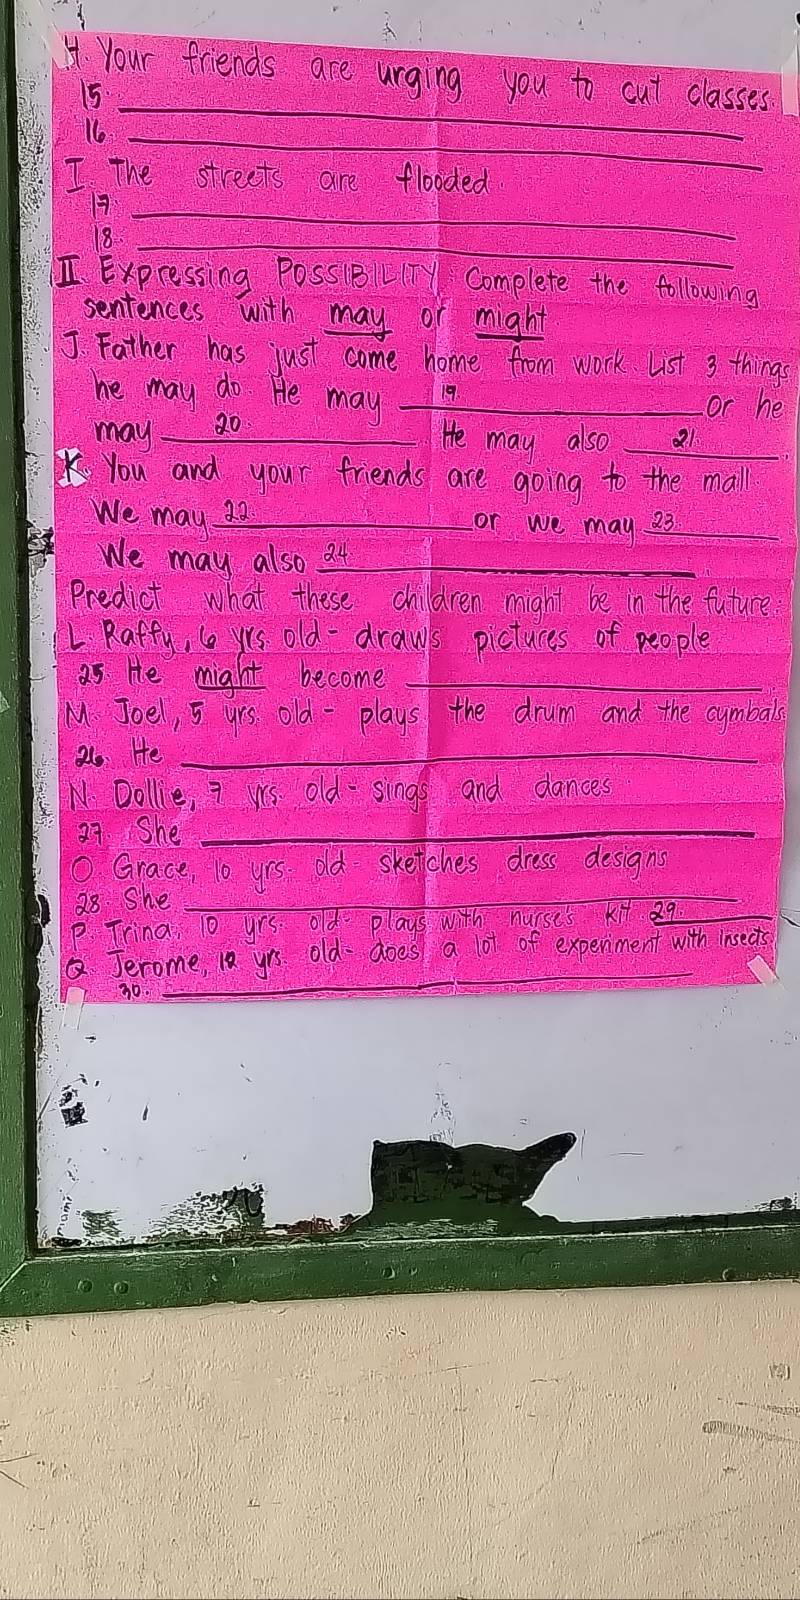 H. Your friends are urging you to cut classes.
15.
16.
I. The streets are flooded.
17.
18.
II. Expressing POSSIBILITY: Complete the following
sentences with may or might
J. Father has just come home from work. List 3 things
he may do. He may 19. or he
may 20. He may also 21.
K. You and your friends are going to the mall.
We may 22. or we may 23.
We may also 24.
Predict what these children might be in the future:
L. Raffy, 6 yrs old - draws pictures of people
25. He might become
M. Joel, 5 yrs. old - plays the drum and the cymbals
26. He
N. Dollie, 7 yrs. old - sings and dances
27. She
O. Grace, 10 yrs. old - sketches dress designs
28 She
P. Trina, 10 yrs. old - plays with nurse's kit 29.
Q Jerome, 12 yrs. old - does a lot of experiment with insects
30.